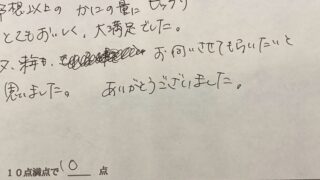 予想以上の かにの量に ビックリ
とてもおいしく、大満足でした。
又、来年も、 お伺いさせてもらいたいと
思いました。 ありがとうございました。
10点満点で 10 点